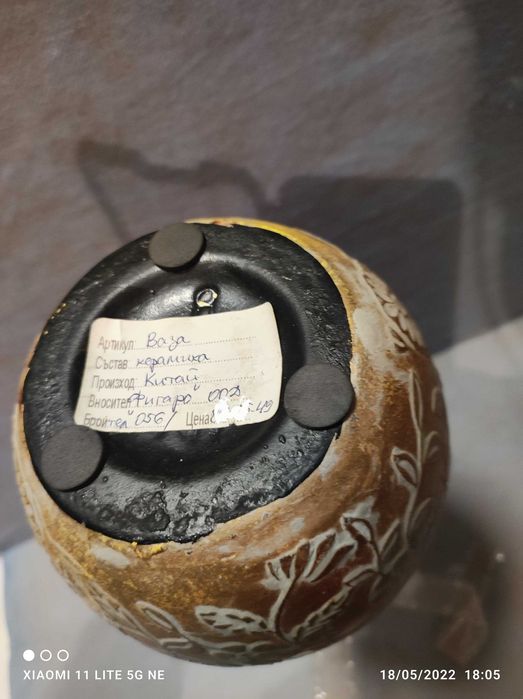 Артикул: Ваза
Състав: керамика
Произход: Китай
Вносител: "Фигаро" ООД
Брой: 056/ Цена:
XIAOMI 11 LITE 5G NE
18/05/2022 18:05